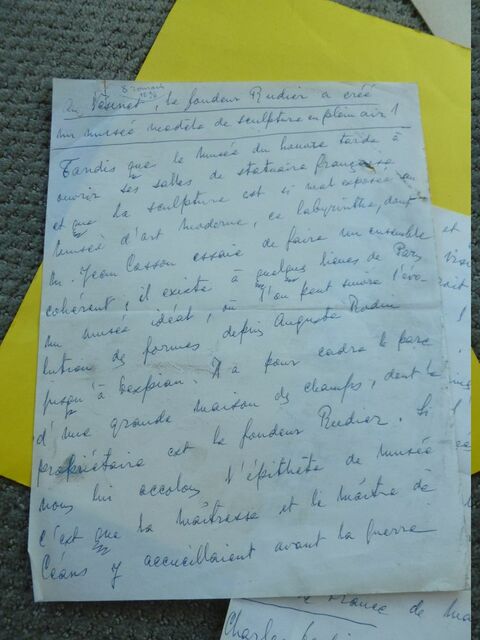 Au Vésinet, le fondeur Rudier a créé
un musée modèle de sculpture en plein air !
Tandis que le musée du Louvre tarde à
ouvrir ses salles de statuaire française
et que la sculpture est si mal exposée au
musée d'art moderne, ce labyrinthe, dont
M. Jean Cassou essaie de faire un ensemble
cohérent, il existe à quelques lieues de Paris
un musée idéal, où l'on peut suivre l'évo-
lution des formes depuis Auguste Rodin
jusqu'à Despiau. Il a pour cadre le parc
d'une grande maison des champs, dont le
propriétaire est le fondeur Rudier. Si
nous lui accolons l'épithète de musée
c'est que la maîtresse et le maître de
Céans y accueillaient avant la guerre
France de
Charles